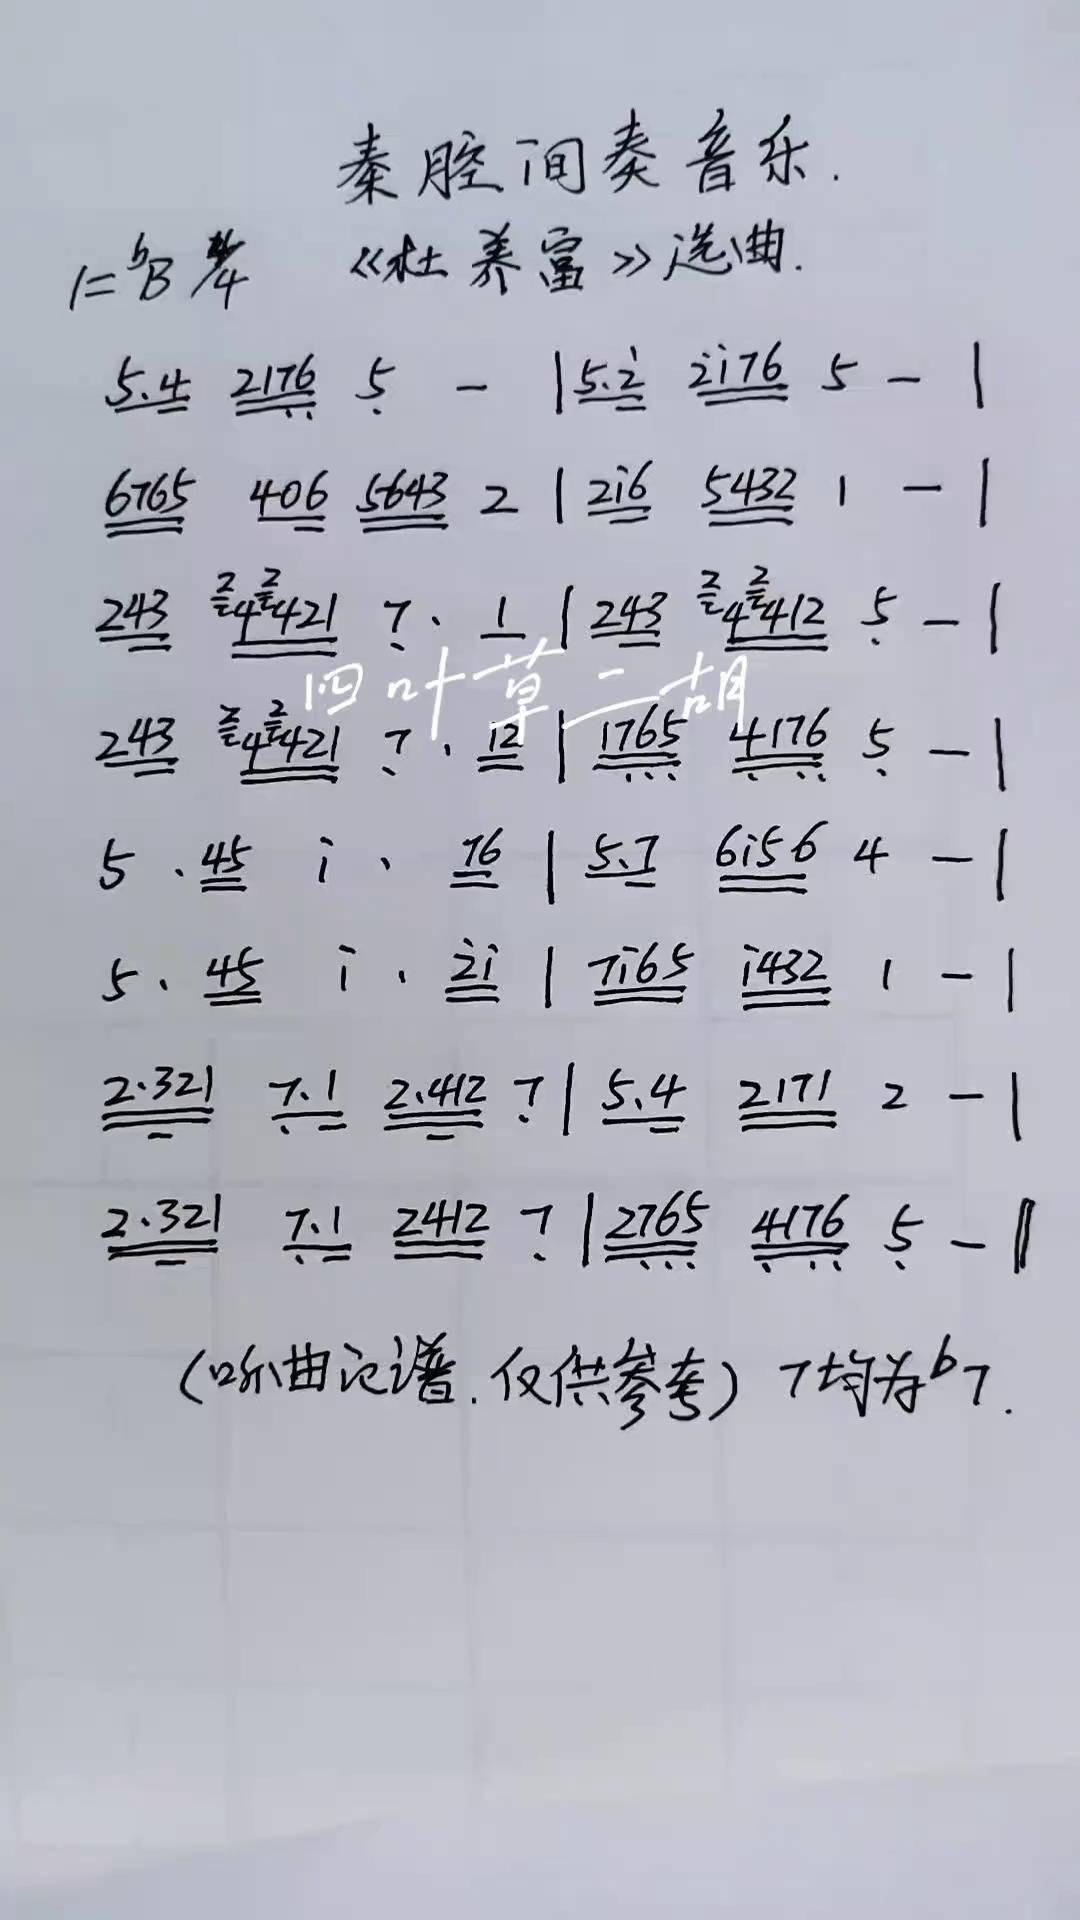 秦腔间奏音乐.
1=ᵇB 4/4 《杜养富》选曲.
5.4 2176 5 - | 5.2̇ 2̇i76 5 - |
6765 406 5643 2 | 2i6 5432 1 - |
243 ²4²421 7̣ . 1 | 243 ²4²412 5̣ - |
四叶草二胡
243 ²4²421 7̣ . 12 | 17̣6̣5̣ 4̣17̣6̣ 5̣ - |
5 . 45 i . 76 | 5.7 6i56 4 - |
5 . 45 i . 2̇i | 7i65 i432 1 - |
2.321 7̣.1 2.412 7̣ | 5.4 2171 2 - |
2.321 7̣.1 2412 7̣ | 27̣6̣5̣ 4̣17̣6̣ 5̣ - ‖
(听曲记谱.仅供参考) 7均为ᵇ7.